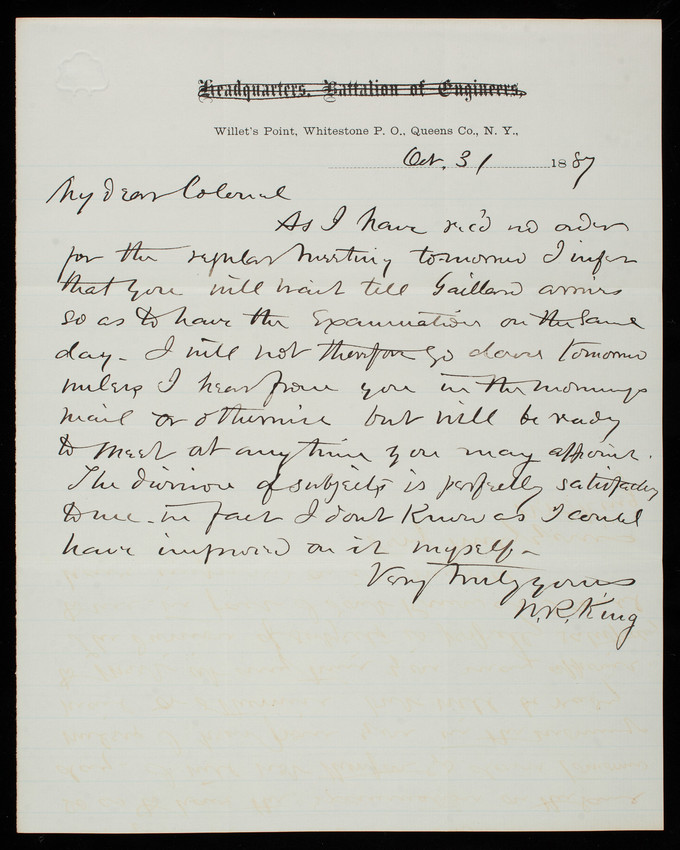 Headquarters, Battalion of Engineers,
Willet's Point, Whitestone P. O., Queens Co., N. Y.,
Oct. 31 1887
My dear Colonel
As I have rec'd no order
for the regular meeting tomorrow I infer
that you will wait till Gaillard arrives
so as to have the Examination on the same
day - I will not therefore go down tomorrow
unless I hear from you in the mornings
mail or otherwise but will be ready
to meet at any time you may appoint.
The division of subjects is perfectly satisfactory
to me - in fact I dont know as I could
have improved on it myself -
Very truly yours
W. R. King